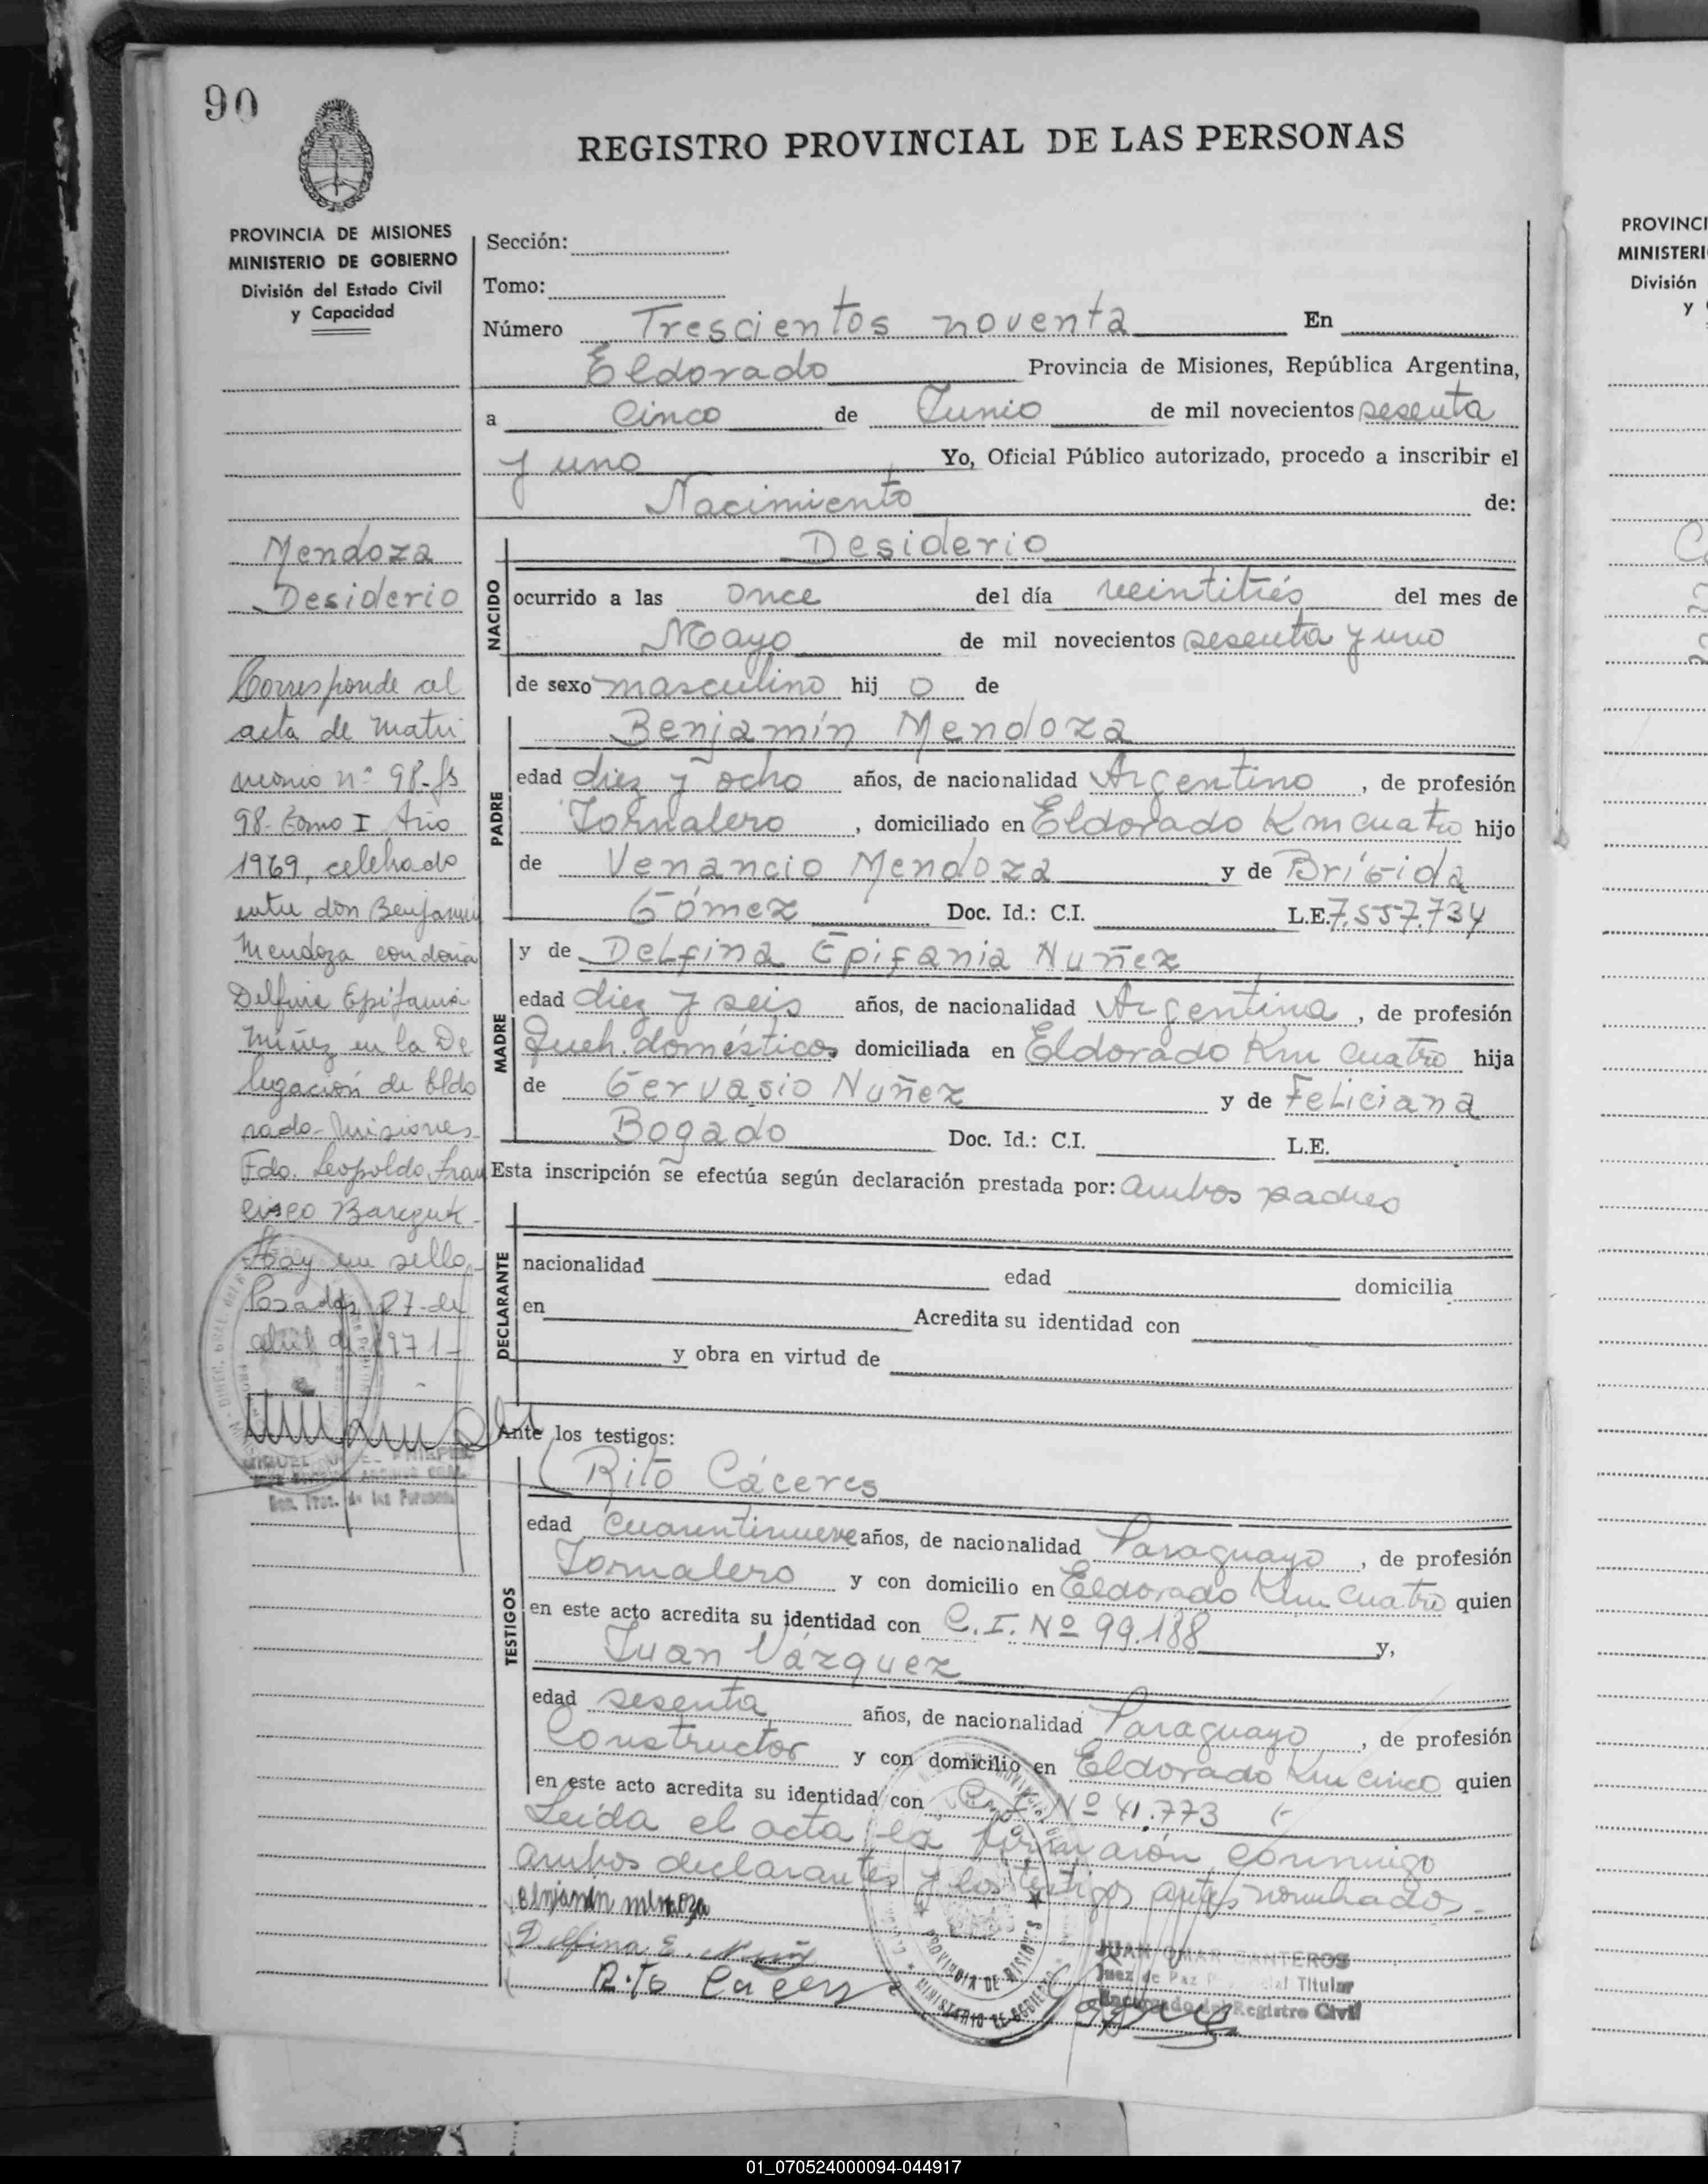 90
REGISTRO PROVINCIAL DE LAS PERSONAS
PROVINCIA DE MISIONES
MINISTERIO DE GOBIERNO
División del Estado Civil
y Capacidad
Mendoza
Desiderio
Corresponde al
acta de matri
monio nº 98-fs
98-Tomo I Año
1969, celebrado
entre don Benjamin
Mendoza con doña
Delfina Epifania
Núñez en la De
legación de Eldo
rado-Misiones-
Fdo. Leopoldo Fran
cisco
Hay un sello-
Posadas 27-de
abril de 1971-
Sección:
Tomo:
Número Trescientos noventa En
Eldorado Provincia de Misiones, República Argentina,
a Cinco de Junio de mil novecientos sesenta
y uno Yo, Oficial Público autorizado, procedo a inscribir el
Nacimiento de:
NACIDO
Desiderio
ocurrido a las once del día veintitrés del mes de
Mayo de mil novecientos sesenta y uno
de sexo masculino hij o de
PADRE
Benjamín Mendoza
edad diez y ocho años, de nacionalidad Argentino, de profesión
Jornalero, domiciliado en Eldorado Km cuatro hijo
de Venancio Mendoza y de Brígida
Gómez Doc. Id.: C.I. L.E. 7.557.734
MADRE
y de Delfina Epifania Nuñez
edad diez y seis años, de nacionalidad Argentina, de profesión
Queh. domésticos, domiciliada en Eldorado Km cuatro hija
de Gervasio Nuñez y de Feliciana
Bogado Doc. Id.: C.I. L.E.
Esta inscripción se efectúa según declaración prestada por: ambos padres
DECLARANTE
nacionalidad edad domicilia
en Acredita su identidad con
y obra en virtud de
Ante los testigos:
TESTIGOS
Rito Cáceres
edad cuarentinueve años, de nacionalidad Paraguayo, de profesión
Jornalero y con domicilio en Eldorado Km cuatro quien
en este acto acredita su identidad con C.I. Nº 99.188 y,
Juan Vázquez
edad sesenta años, de nacionalidad Paraguayo, de profesión
Constructor y con domicilio en Eldorado Km cinco quien
en este acto acredita su identidad con C.I. Nº 41.773
Leída el acta la firmarón conmigo
ambos declarantes y los testigos antes nombrados.-
Benjamin mendoza
Delfina E. Nuñ
Rito Caceres
PROVINCIA DE MISIONES
MINISTERIO DE GOBIERNO
JUAN OMAR CANTEROS
Juez de Paz Titular
Encargado del Registro Civil
PROVINCI
MINISTERI
División
y
01_070524000094-044917